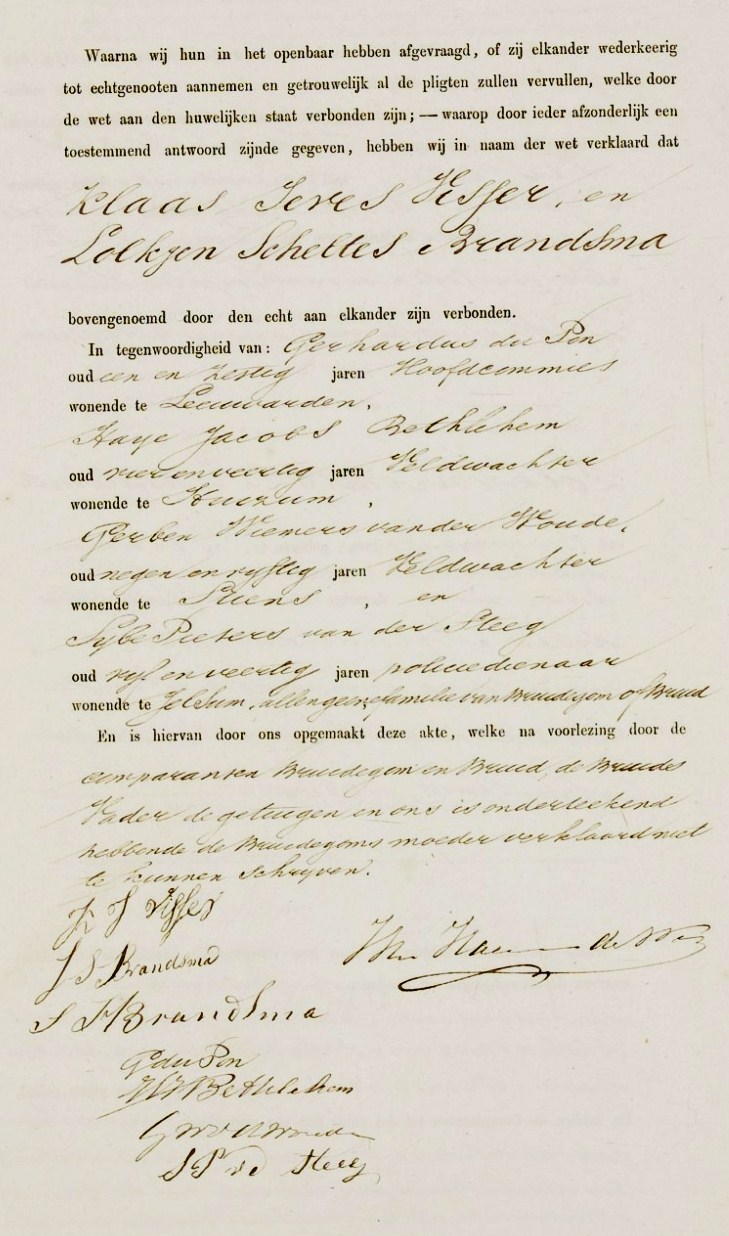 Waarna wij hun in het openbaar hebben afgevraagd, of zij elkander wederkeerig
tot echtgenooten aannemen en getrouwelijk al de pligten zullen vervullen, welke door
de wet aan den huwelijken staat verbonden zijn; — waarop door ieder afzonderlijk een
toestemmend antwoord zijnde gegeven, hebben wij in naam der wet verklaard dat
Klaas Jeres Visser, en
Lolkjen Scheltes Brandsma
bovengenoemd door den echt aan elkander zijn verbonden.
In tegenwoordigheid van: Gerhardus du Pon
oud een en zestig jaren Hoofdcommies
wonende te Leeuwarden,
Haye Jacobs Bethlehem
oud vier en veertig jaren Veldwachter
wonende te Huizum,
Gerben Wiemers van der Woude,
oud negen en vyftig jaren Veldwachter
wonende te Stiens, en
Sybe Pieters van der Steeg
oud vyf en veertig jaren policiedienaar
wonende te Jelsum, allen geene familie van Bruidegom of Bruid
En is hiervan door ons opgemaakt deze akte, welke na voorlezing door de
comparanten Bruidegom en Bruid, de Bruids
Vader de getuigen en ons is onderteekend
hebbende de Bruidegoms moeder verklaard niet
te kunnen schryven.
K J Visser
L S Brandsma
S H Brandsma
G du Pon
H J Bethlehem
G W v d Woude
S P v d Steeg